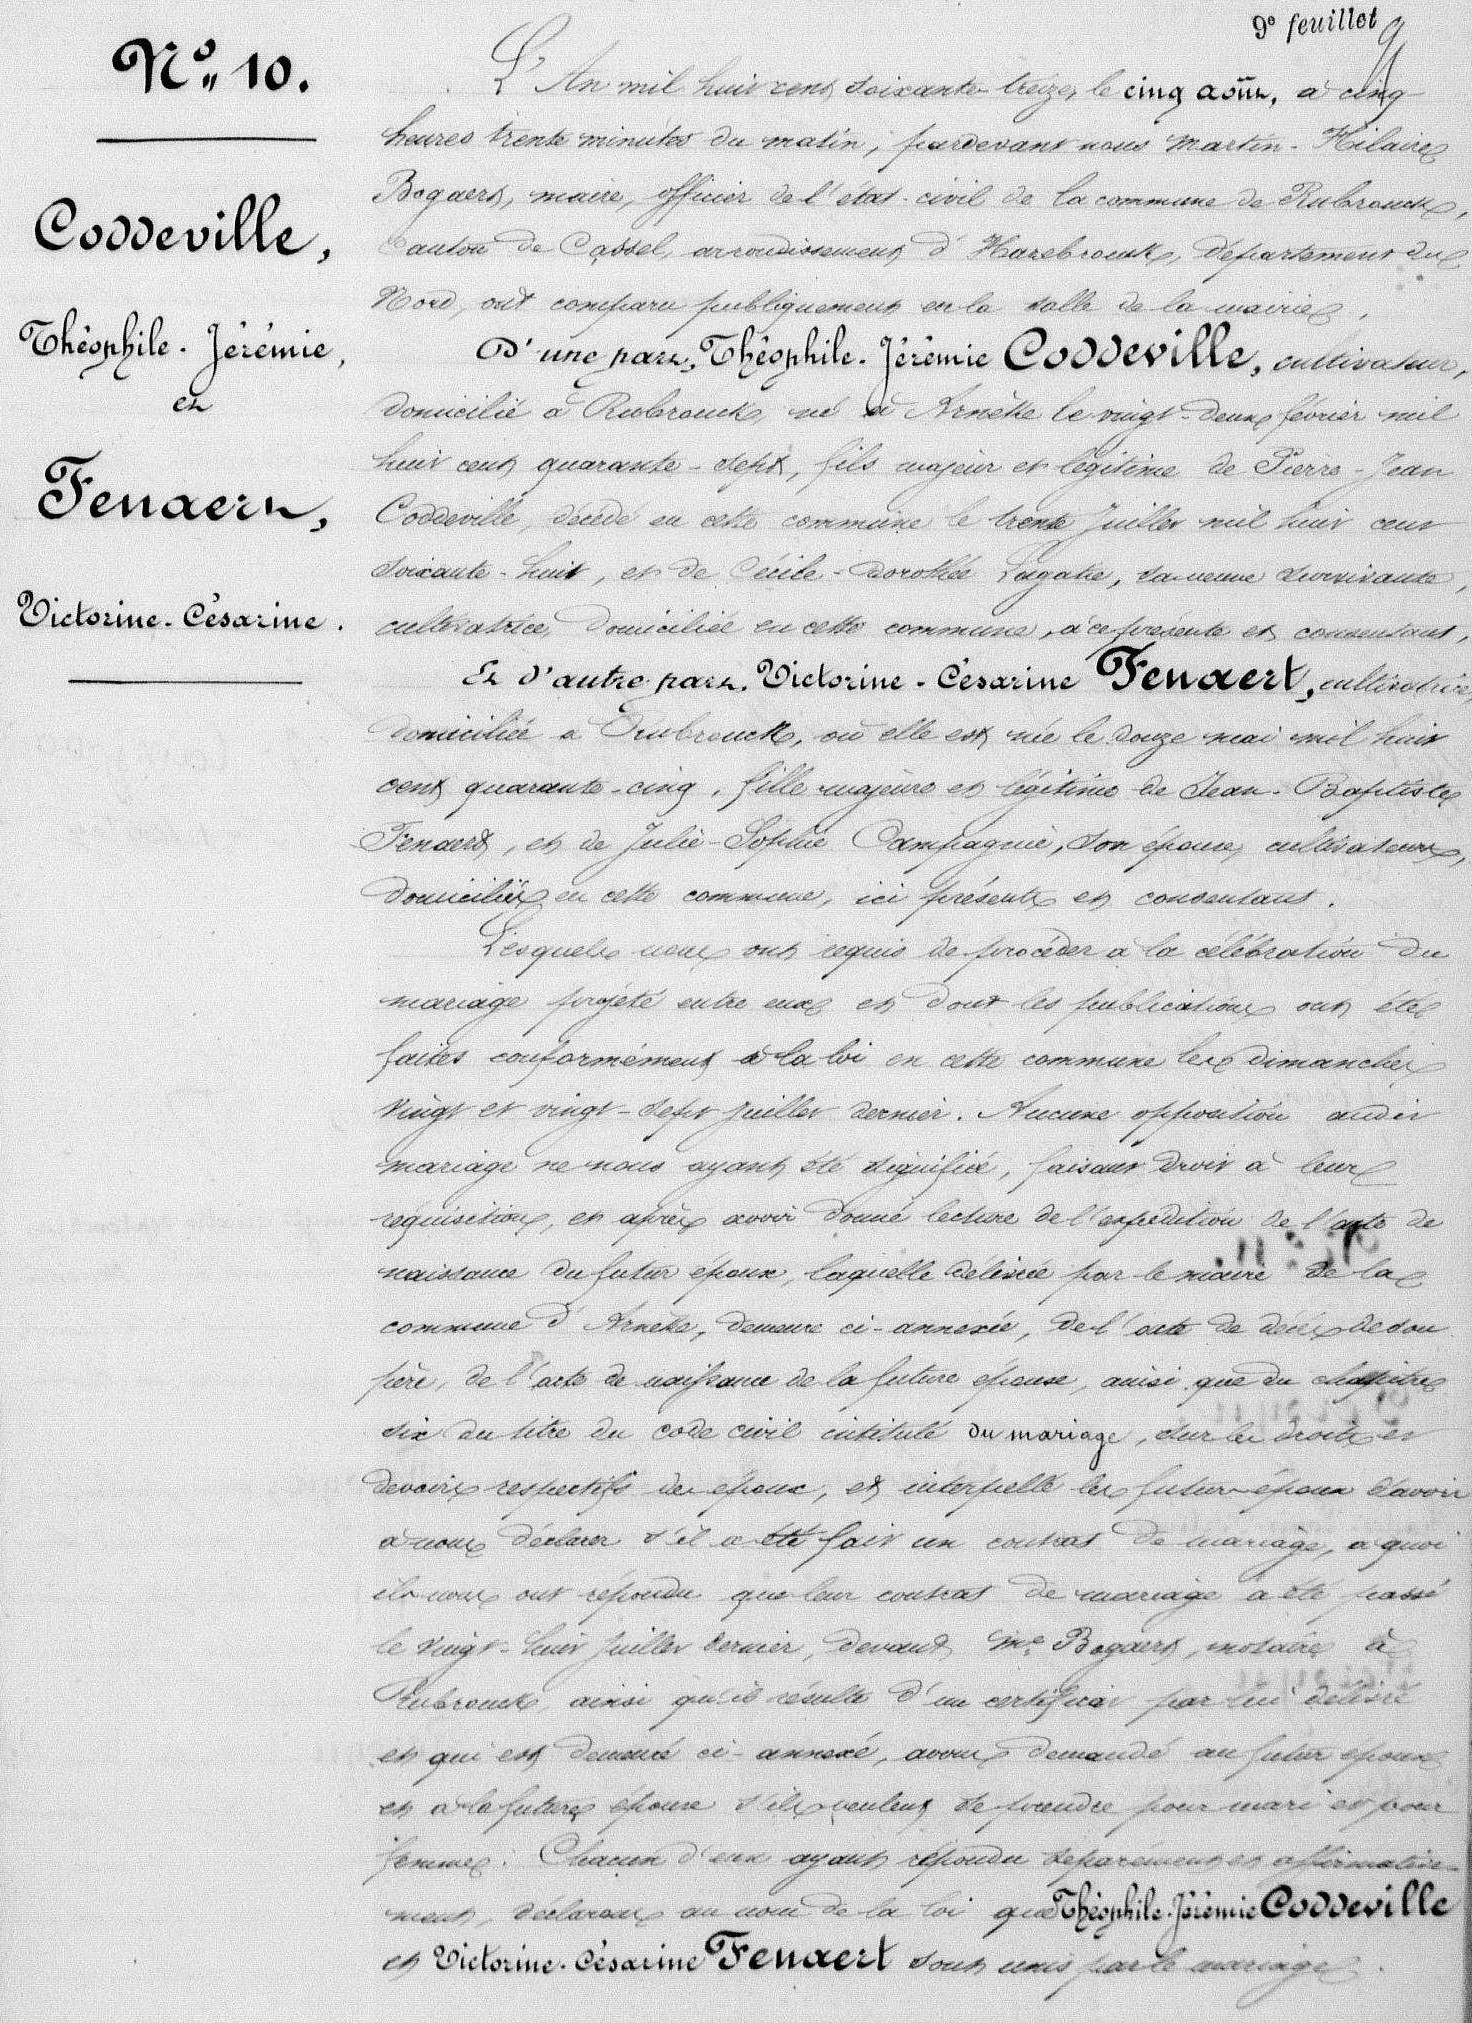 9e feuillet 9
No 10.
Coddeville,
Théophile-Jérémie,
et
Fenaert,
Victorine-Césarine.
L'An mil huit cent soixante-treize, le cinq août, à cinq
heures trente minutes du matin, pardevant nous Martin-Hilaire
Bogaert, maire, officier de l'état-civil de la commune de Rubrouck,
canton de Cassel, arrondissement d'Hazebrouck, département du
Nord, ont comparu publiquement en la salle de la mairie,
D'une part, Théophile-Jérémie Coddeville, cultivateur,
domicilié à Rubrouck, né à Arnèke le vingt-deux février mil
huit cent quarante-sept, fils majeur et légitime de Pierre-Jean
Coddeville, décédé en cette commune le trente Juillet mil huit cent
soixante-huit, et de Cécile-Dorothée Lagatie, sa veuve survivante,
cultivatrice, domiciliée en cette commune, à ce présente et consentant,
Et d'autre part, Victorine-Césarine Fenaert, cultivatrice,
domiciliée à Rubrouck, où elle est née le douze mai mil huit
cent quarante-cinq, fille majeure et légitime de Jean-Baptiste
Fenaert, et de Julie-Sophie Campagnie, son épouse, cultivateurs,
domiciliés en cette commune, ici présents et consentant.
Lesquels nous ont requis de procéder à la célébration du
mariage projeté entre eux et dont les publications ont été
faites conformément à la loi en cette commune les dimanches
vingt et vingt-sept Juillet dernier. Aucune opposition audit
mariage ne nous ayant été signifiée, faisant droit à leur
réquisition, et après avoir donné lecture de l'expédition de l'acte de
naissance du futur époux, laquelle délivrée par le maire de la
commune d'Arnèke, demeure ci-annexée, de l'acte de décès de son
père, de l'acte de naissance de la future épouse, ainsi que du chapitre
six du titre du code civil intitulé du mariage, sur les droits et
devoirs respectifs des époux, et interpellé les futurs époux d'avoir
à nous déclarer s'il a été fait un contrat de mariage, à quoi
ils nous ont répondu que leur contrat de mariage a été passé
le vingt-huit Juillet dernier, devant Me Bogaert, notaire à
Rubrouck, ainsi qu'il résulte d'un certificat par lui délivré
et qui est demeuré ci-annexé, avons demandé au futur époux
et à la future épouse s'ils veulent se prendre pour mari et pour
femme: Chacun d'eux ayant répondu séparément et affirmative-
ment, déclarons au nom de la loi que Théophile-Jérémie Coddeville
et Victorine-Césarine Fenaert sont unis par le mariage.